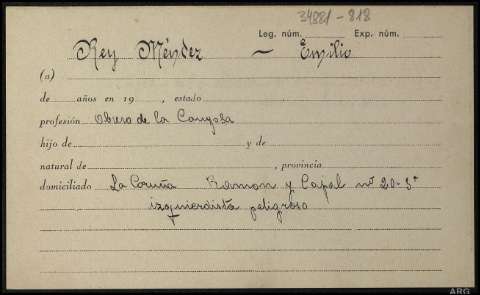 34881-818
Leg. núm. Exp. núm.
Rey Méndez — Emilio
(a)
de años en 19 , estado
profesión Obrero de la Cangosa
hijo de y de
natural de , provincia
domiciliado La Coruña Ramon y Cajal nº 20-3º
izquierdista peligroso
ARG